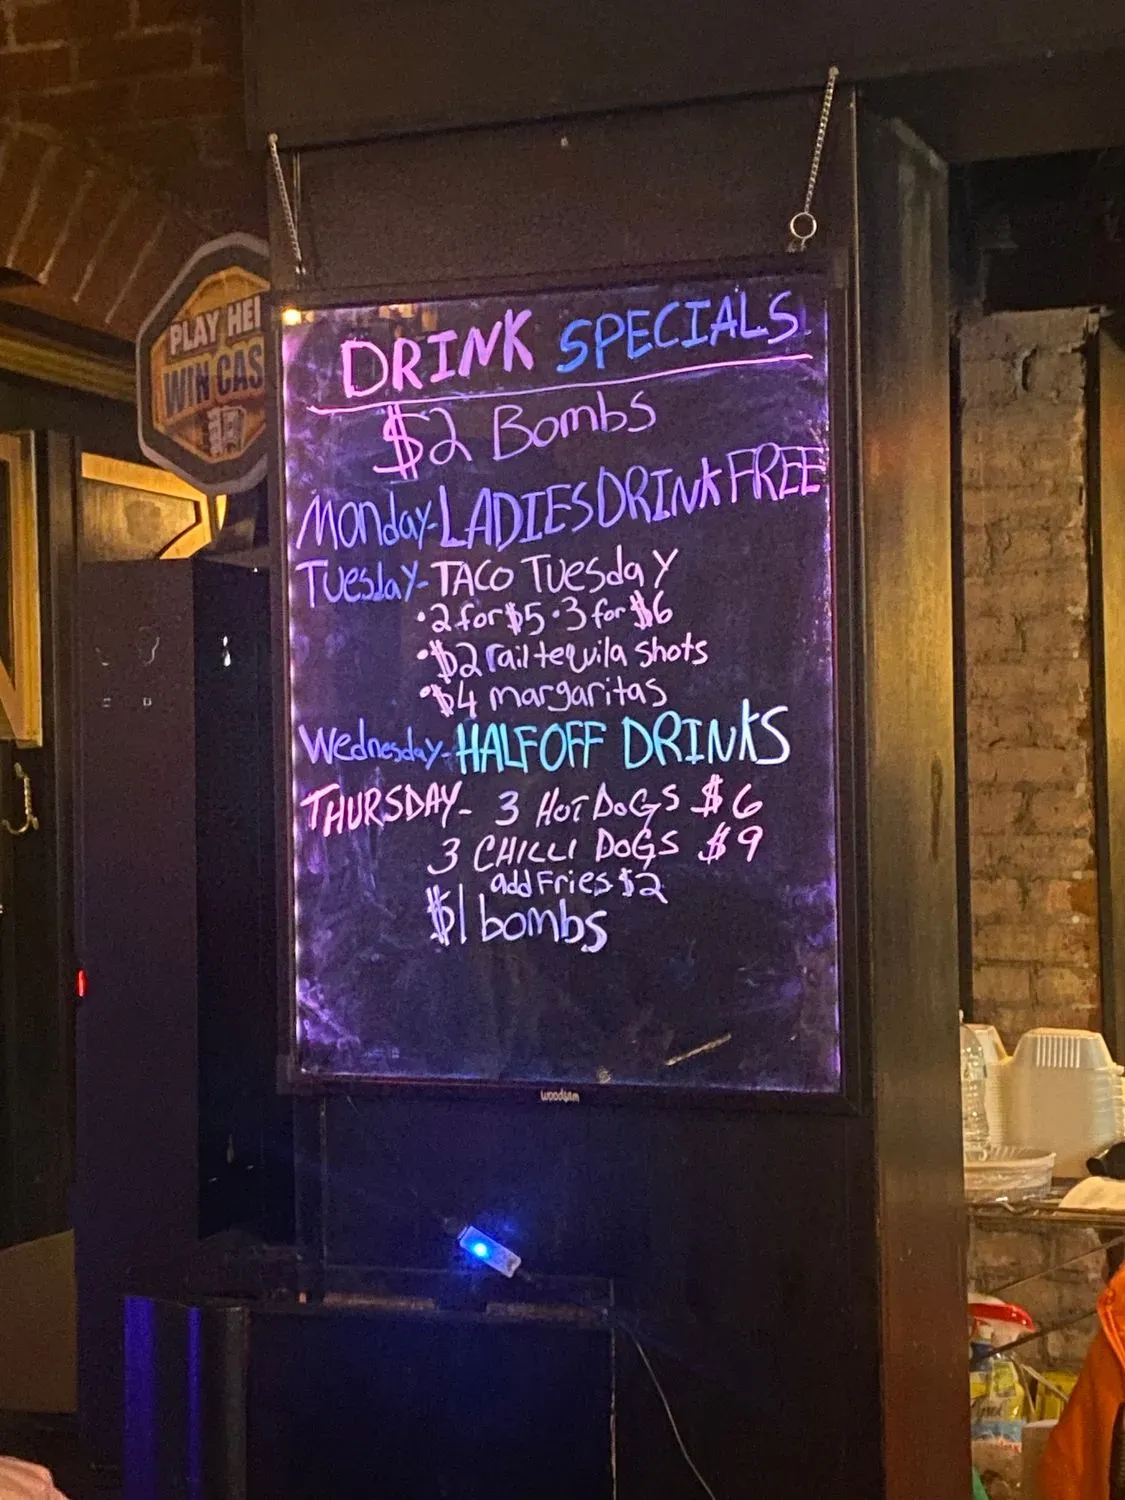 PLAY HE
WIN CAS
DRINK SPECIALS
$2 Bombs
Monday-LADIES DRINK FREE
Tuesday-TACO Tuesday
•2 for $5 •3 for $6
•$2 rail tequila shots
•$4 margaritas
Wednesday-HALF OFF DRINKS
THURSDAY- 3 HOT DOGS $6
3 CHILLI DOGS $9
add Fries $2
$1 bombs
woodsam